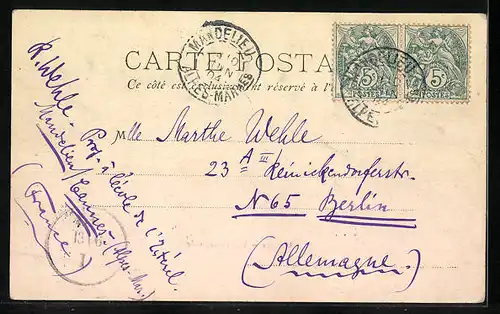 MANDELIEU
ALPES-MARMES
24
CARTE POSTA
Ce côté est exclusivement réservé à l'
5c
5c
POSTES
Mlle Marthe Wehle
23 A III Reinickendorferstr.
N 65 Berlin
(Allemagne)
R. Wehle - Prof. à l'école de l'Estérel.
Mandelieu/Cannes (Alpes-Mar.)
(France)